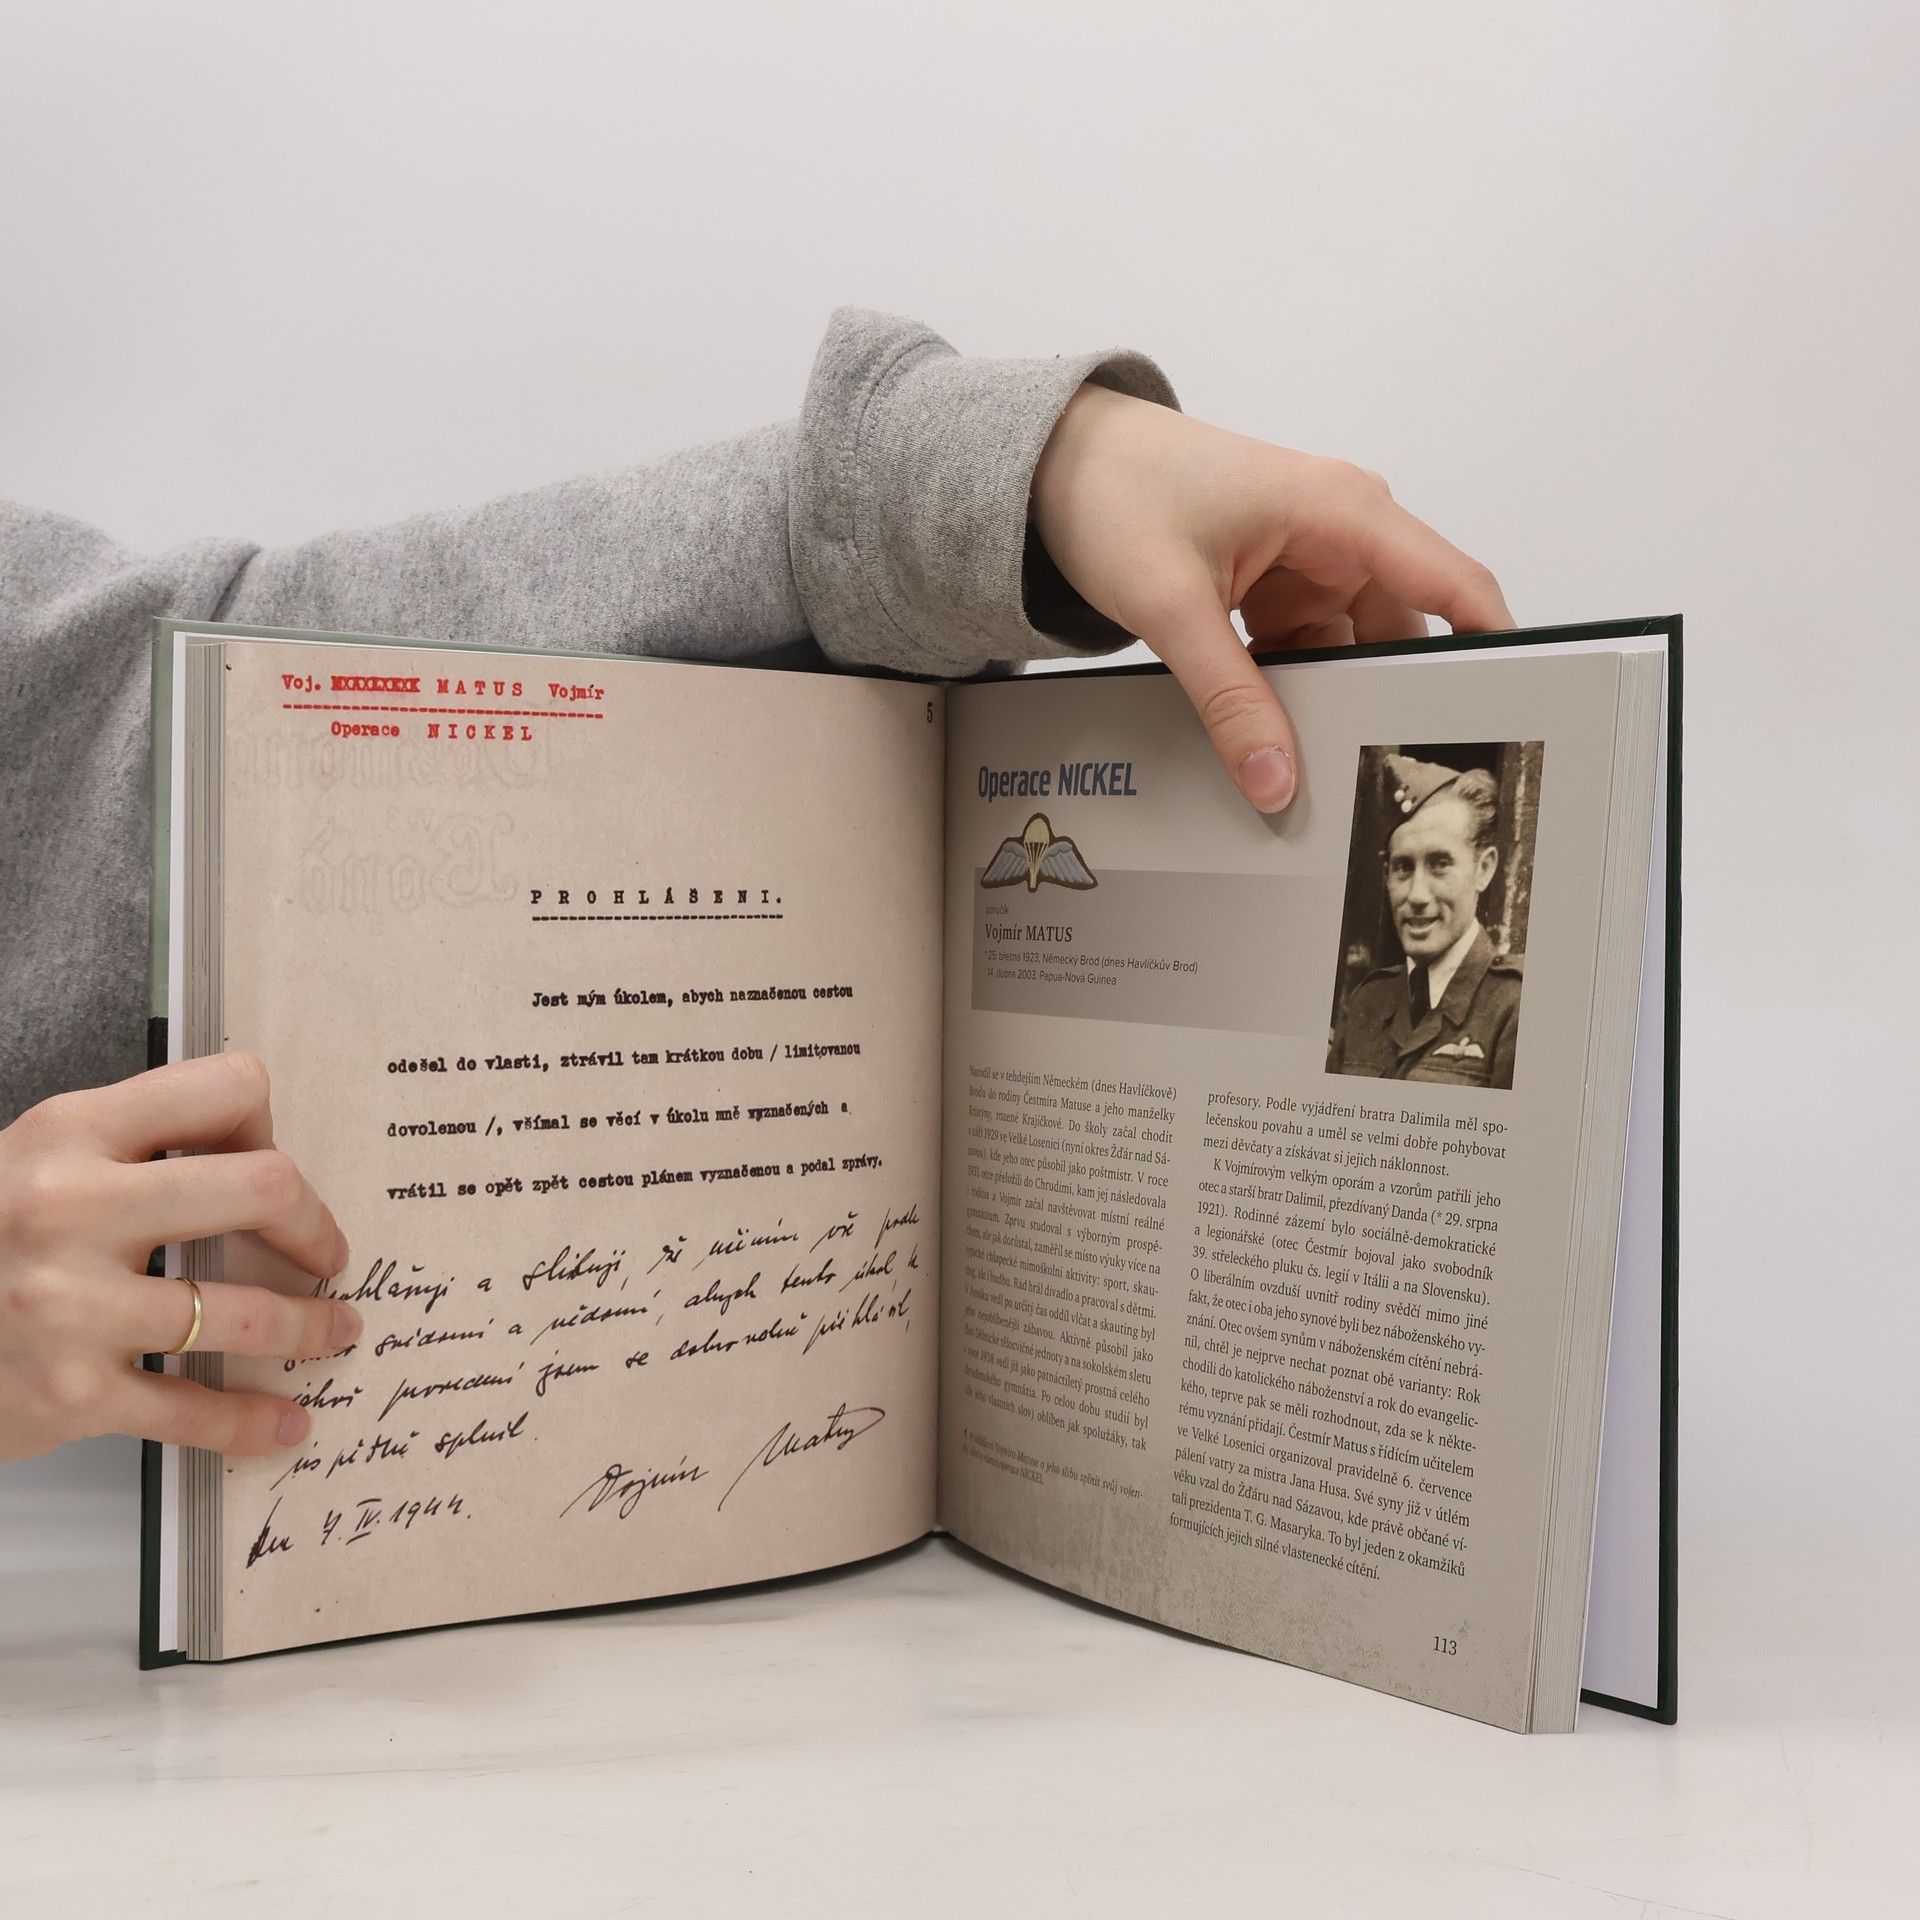 Voj. MATUS Vojmír
Operace NICKEL
5
PROHLÁŠENI.
Jest mým úkolem, abych naznačenou cestou
odešel do vlasti, ztrávil tam krátkou dobu / limitovanou
dovolenou /, všímal se věcí v úkolu mně vyznačených a
vrátil se opět zpět cestou plánem vyznačenou a podal zprávy.
a slibuji, že učiním vše podle
svědomí a vědomí, abych tento úkol, k
provedení jsem se dobrovolně přihlásil,
úspěšně splnil.
7. IV. 1944. Vojmír Matus
Operace NICKEL
poručík
Vojmír MATUS
* 25. března 1923, Německý Brod (dnes Havlíčkův Brod)
14. dubna 2003, Papua-Nová Guinea
Narodil se v tehdejším Německém (dnes Havlíčkově)
Brodu do rodiny Čestmíra Matuse a jeho manželky
Kristýny, rozené Krajíčkové. Do školy začal chodit
v září 1929 ve Velké Losenici (nyní okres Žďár nad Sá-
zavou), kde jeho otec působil jako poštmistr. V roce
1931 otce přeložili do Chrudimi, kam jej následovala
i rodina a Vojmír začal navštěvovat místní reálné
gymnázium. Zprvu studoval s výborným prospě-
chem, ale jak dorůstal, zaměřil se místo výuky více na
typické chlapecké mimoškolní aktivity: sport, skau-
ting, ale i hudbu. Rád hrál divadlo a pracoval s dětmi.
V Junáku vedl po určitý čas oddíl vlčat a skauting byl
jeho nejoblíbenější zábavou. Aktivně působil jako
člen Dělnické tělocvičné jednoty a na sokolském sletu
v roce 1938 vedl již jako patnáctiletý prostná celého
chrudimského gymnázia. Po celou dobu studií byl
(dle jeho vlastních slov) oblíben jak spolužáky, tak
Prohlášení Vojmíra Matuse o jeho slibu splnit svůj vojen-
operace NICKEL
profesory. Podle vyjádření bratra Dalimila měl spo-
lečenskou povahu a uměl se velmi dobře pohybovat
mezi děvčaty a získávat si jejich náklonnost.
K Vojmírovým velkým oporám a vzorům patřili jeho
otec a starší bratr Dalimil, přezdívaný Danda (* 29. srpna
1921). Rodinné zázemí bylo sociálně-demokratické
a legionářské (otec Čestmír bojoval jako svobodník
39. střeleckého pluku čs. legií v Itálii a na Slovensku).
O liberálním ovzduší uvnitř rodiny svědčí mimo jiné
fakt, že otec i oba jeho synové byli bez náboženského vy-
znání. Otec ovšem synům v náboženském cítění nebrá-
nil, chtěl je nejprve nechat poznat obě varianty: Rok
chodili do katolického náboženství a rok do evangelic-
kého, teprve pak se měli rozhodnout, zda se k někte-
rému vyznání přidají. Čestmír Matus s řídícím učitelem
ve Velké Losenici organizoval pravidelně 6. července
pálení vatry za mistra Jana Husa. Své syny již v útlém
věku vzal do Žďáru nad Sázavou, kde právě občané ví-
tali prezidenta T. G. Masaryka. To byl jeden z okamžiků
formujících jejich silné vlastenecké cítění.
113